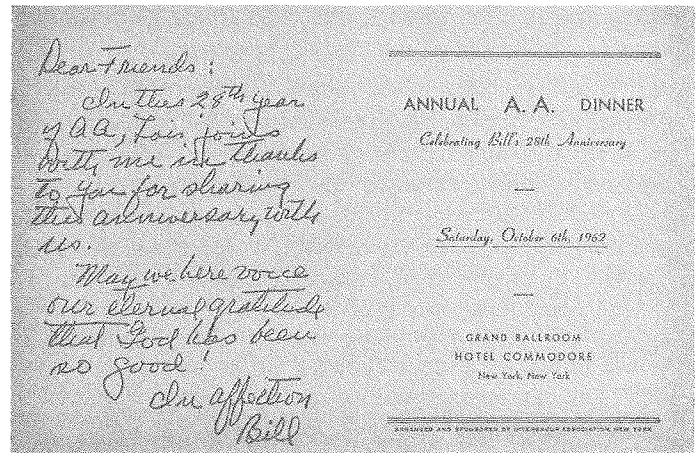 Dear Friends :
In this 28th year
of AA, Lois joins
with me in thanks
to you for sharing
this anniversary with
us.
May we here voice
our eternal gratitude
that God has been
so good!
In affection
Bill
ANNUAL A. A. DINNER
Celebrating Bill's 28th Anniversary
Saturday, October 6th, 1962
GRAND BALLROOM
HOTEL COMMODORE
New York, New York
ARRANGED AND SPONSORED BY INTERGROUP ASSOCIATION, NEW YORK